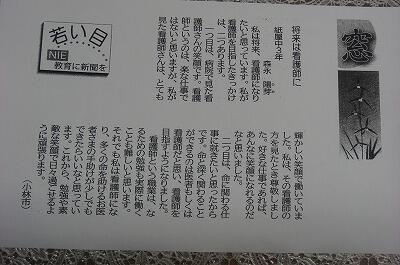 窓
若い目
NIE
教育に新聞を
将来は看護師に
紙屋中3年
森永 陽芽
私は将来、看護師になり
たいと思っています。私が
看護師を目指したきっかけ
は、二つあります。
一つ目は、病院で見た看
護師さんの笑顔です。看護
師というのは、楽な仕事で
はないと思いますが、私が
見た看護師さんは、とても
輝かしい笑顔で働いていま
した。私は、その看護師の
方を見たとき尊敬しまし
た。好きな仕事であれば、
あんなに笑顔になれるのだ
なと思いました。
二つ目は、命に関わる仕
事に就きたいと思ったから
です。命と深く関わること
ができるのは医者もしくは
看護師だと思い、看護師を
目指すようになりました。
看護師という職業は、な
るための勉強も実際に働く
ことも難しいと思います。
それでも私は看護師にな
り、多くの命を助けるお医
者さまの手助けが少しでも
できたらいいなと思ってい
ます。これから、勉強や素
敵な笑顔で日々過ごせるよ
うに頑張ります。
(小林市)